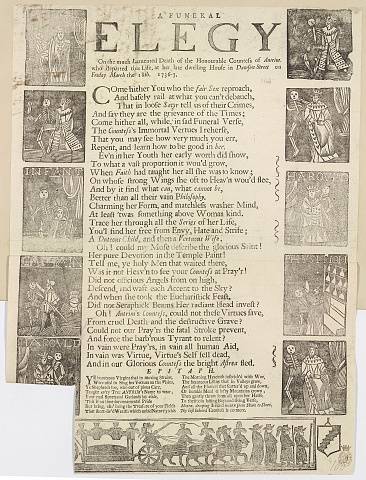 A FUNERAL
ELEGY
On the much Lamented Death of the Honourable Countess of Antrim,
who departed this Life, at her late dwelling House in Dawson-Street on
Friday March the 18th. 1736-7.
COme hither You who the fair Sex reproach,
And basely rail at what you can't debauch,
That in loose Satyr tell us of their Crimes,
And say they are the grievance of the Times;
Come hither all, while, in sad Funeral Verse,
The Countess's Immortal Vertues I reherse,
That you may see how very much you err,
Repent, and learn how to be good in her.
Ev'n in her Youth her early worth did show,
To what a vast proportion it wou'd grow,
When Faith had taught her all she was to know;
On whose strong Wings she oft to Heav'n wou'd flee,
And by it find what can, what cannot be,
Better than all their vain Philosophy.
Charming her Form, and matchless was her Mind,
At least 'twas something above Woman kind.
Trace her through all the Series of her Life,
You'll find her free from Envy, Hate and Strife;
A Duteous Child, and then a Fortunate Wife;
Oh! could my Muse describe the glorious Saint!
Her pure Devotion in the Temple Paint!
Tell me, ye holy Men that waited there,
Was it not Heav'n to see your Countess at Pray'r!
Did not officious Angels from on high,
Descend, and waft each Accent to the Sky?
And when she took the Eucharistick Feast,
Did not Seraphick Beams Her radiant Head invest?
Oh! Antrim's Countess, could not these Virtues save,
From cruel Death and the destructive Grave?
Could not our Pray'rs the fatal Stroke prevent,
And force the barb'rous Tyrant to relent?
In vain were Pray'rs, in vain all human Aid,
In vain was Virtue, Virtue's Self fell dead,
And in our Glorious Countess the bright Astrea fled.
EPITAPH.